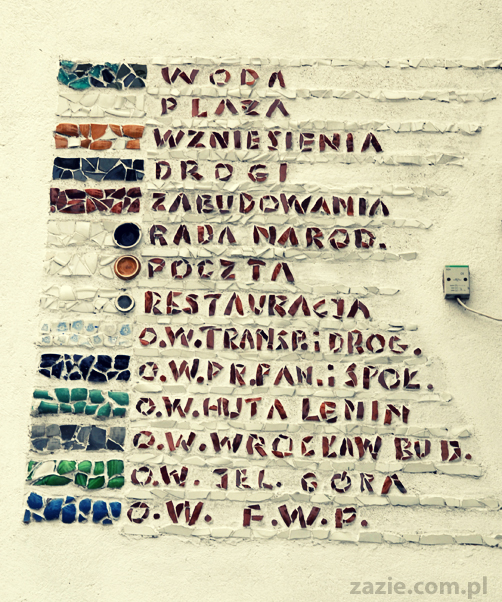 WODA
PLAŻA
WZNIESIENIA
DROGI
ZABUDOWANIA
RADA NAROD.
POCZTA
RESTAURACJA
O.W.TRANSP.i DROG.
O.W.PR.PAN.i SPOŁ.
O.W.HUTA LENIN
O.W.WROCŁAW BUD.
O.W. JEL. GÓRA
O.W. F.W.P.
zazie.com.pl